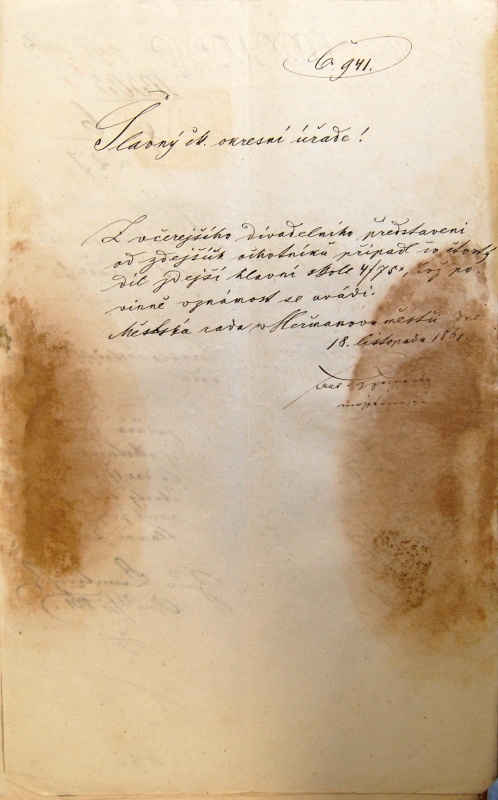 Č. 941.
Slavný ck. okresní úřade!
Z včerejšího divadelního představení
od zdejších ochotníků připadl co čtvrtý
díl zdejší hlavní škole 4/75x, což po-
vinně v známost se uvádí.
Městská rada v Heřmanově městci dne
18. listopadu 1861